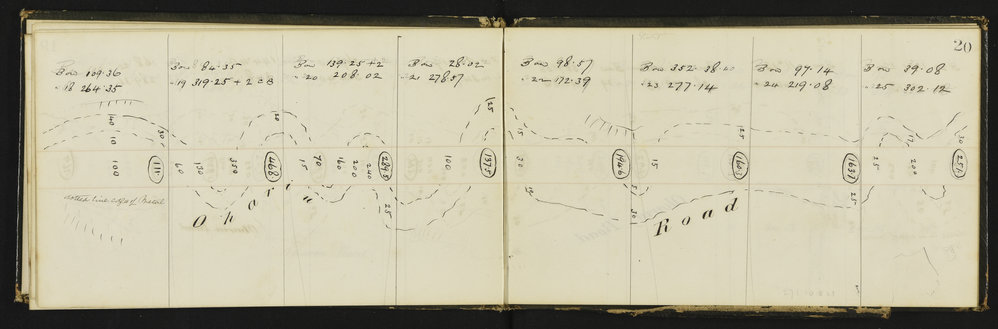 20
Bow 109.36
" 18 264.35
Bow 84.35
" 19 319.25 + 2 = B
Bow 139.25+2
" 20 208.02
Bow 28.02
" 21 278.57
Bow 98.57
" 22 172.39
Bow 352.38.40
" 23 277.14
Bow 97.14
" 24 219.08
Bow 39.08
" 25 302.12
40
10
100
30
111
60
130
350
468
70
15
160
200
240
25
100
25
1375
15
30
1946
5
30
15
25
1603
1637
25
25
200
30
dotted line edge of Metal
Ohariu
Road